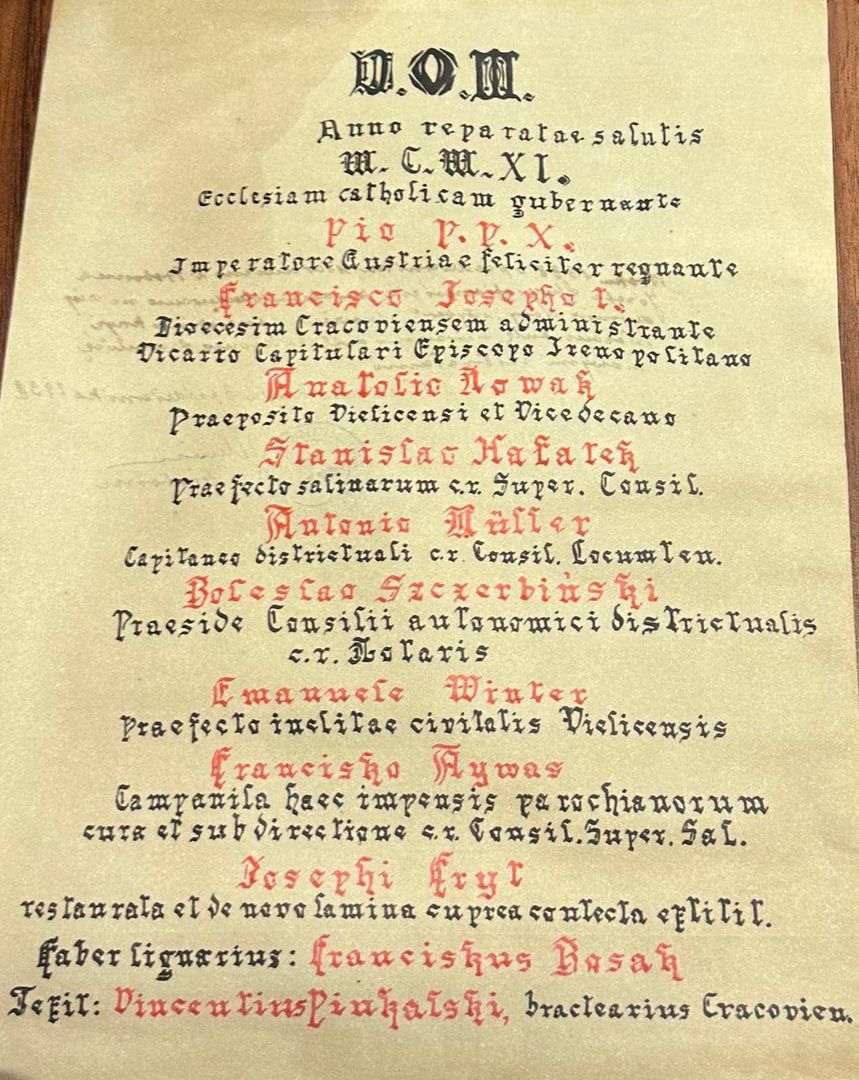 D.O.M.
Anno reparatae salutis
M.C.M.XI.
Ecclesiam catholicam gubernante
Pio P.P.X.
Imperatore Austriae feliciter regnante
Francisco Josepho I.
Dioecesim Cracoviensem administrante
Vicario Capitulari Episcopo Irenopolitano
Anatolio Nowak
Praeposito Vielicensi et Vicedecano
Stanislao Hałatek
Praefecto salinarum c.r. Super. Consil.
Antonio Müller
Capitaneo districtuali c.r. Consil. Locumten.
Boleslao Szczerbiński
Praeside Consilii autonomici districtualis
c.r. Notaris
Emanuele Winter
Praefecto inclitae civitatis Vielicensis
Francisko Aywas
Campanila haec impensis parochianorum
cura et sub directione c.r. Consil. Super. Sal.
Josephi Fryt
restaurata et de novo lamina cuprea contecta extitit.
Faber lignarius: Franciskus Bosak
Texit: Vincentius Pinkalski, bractearius Cracovien.